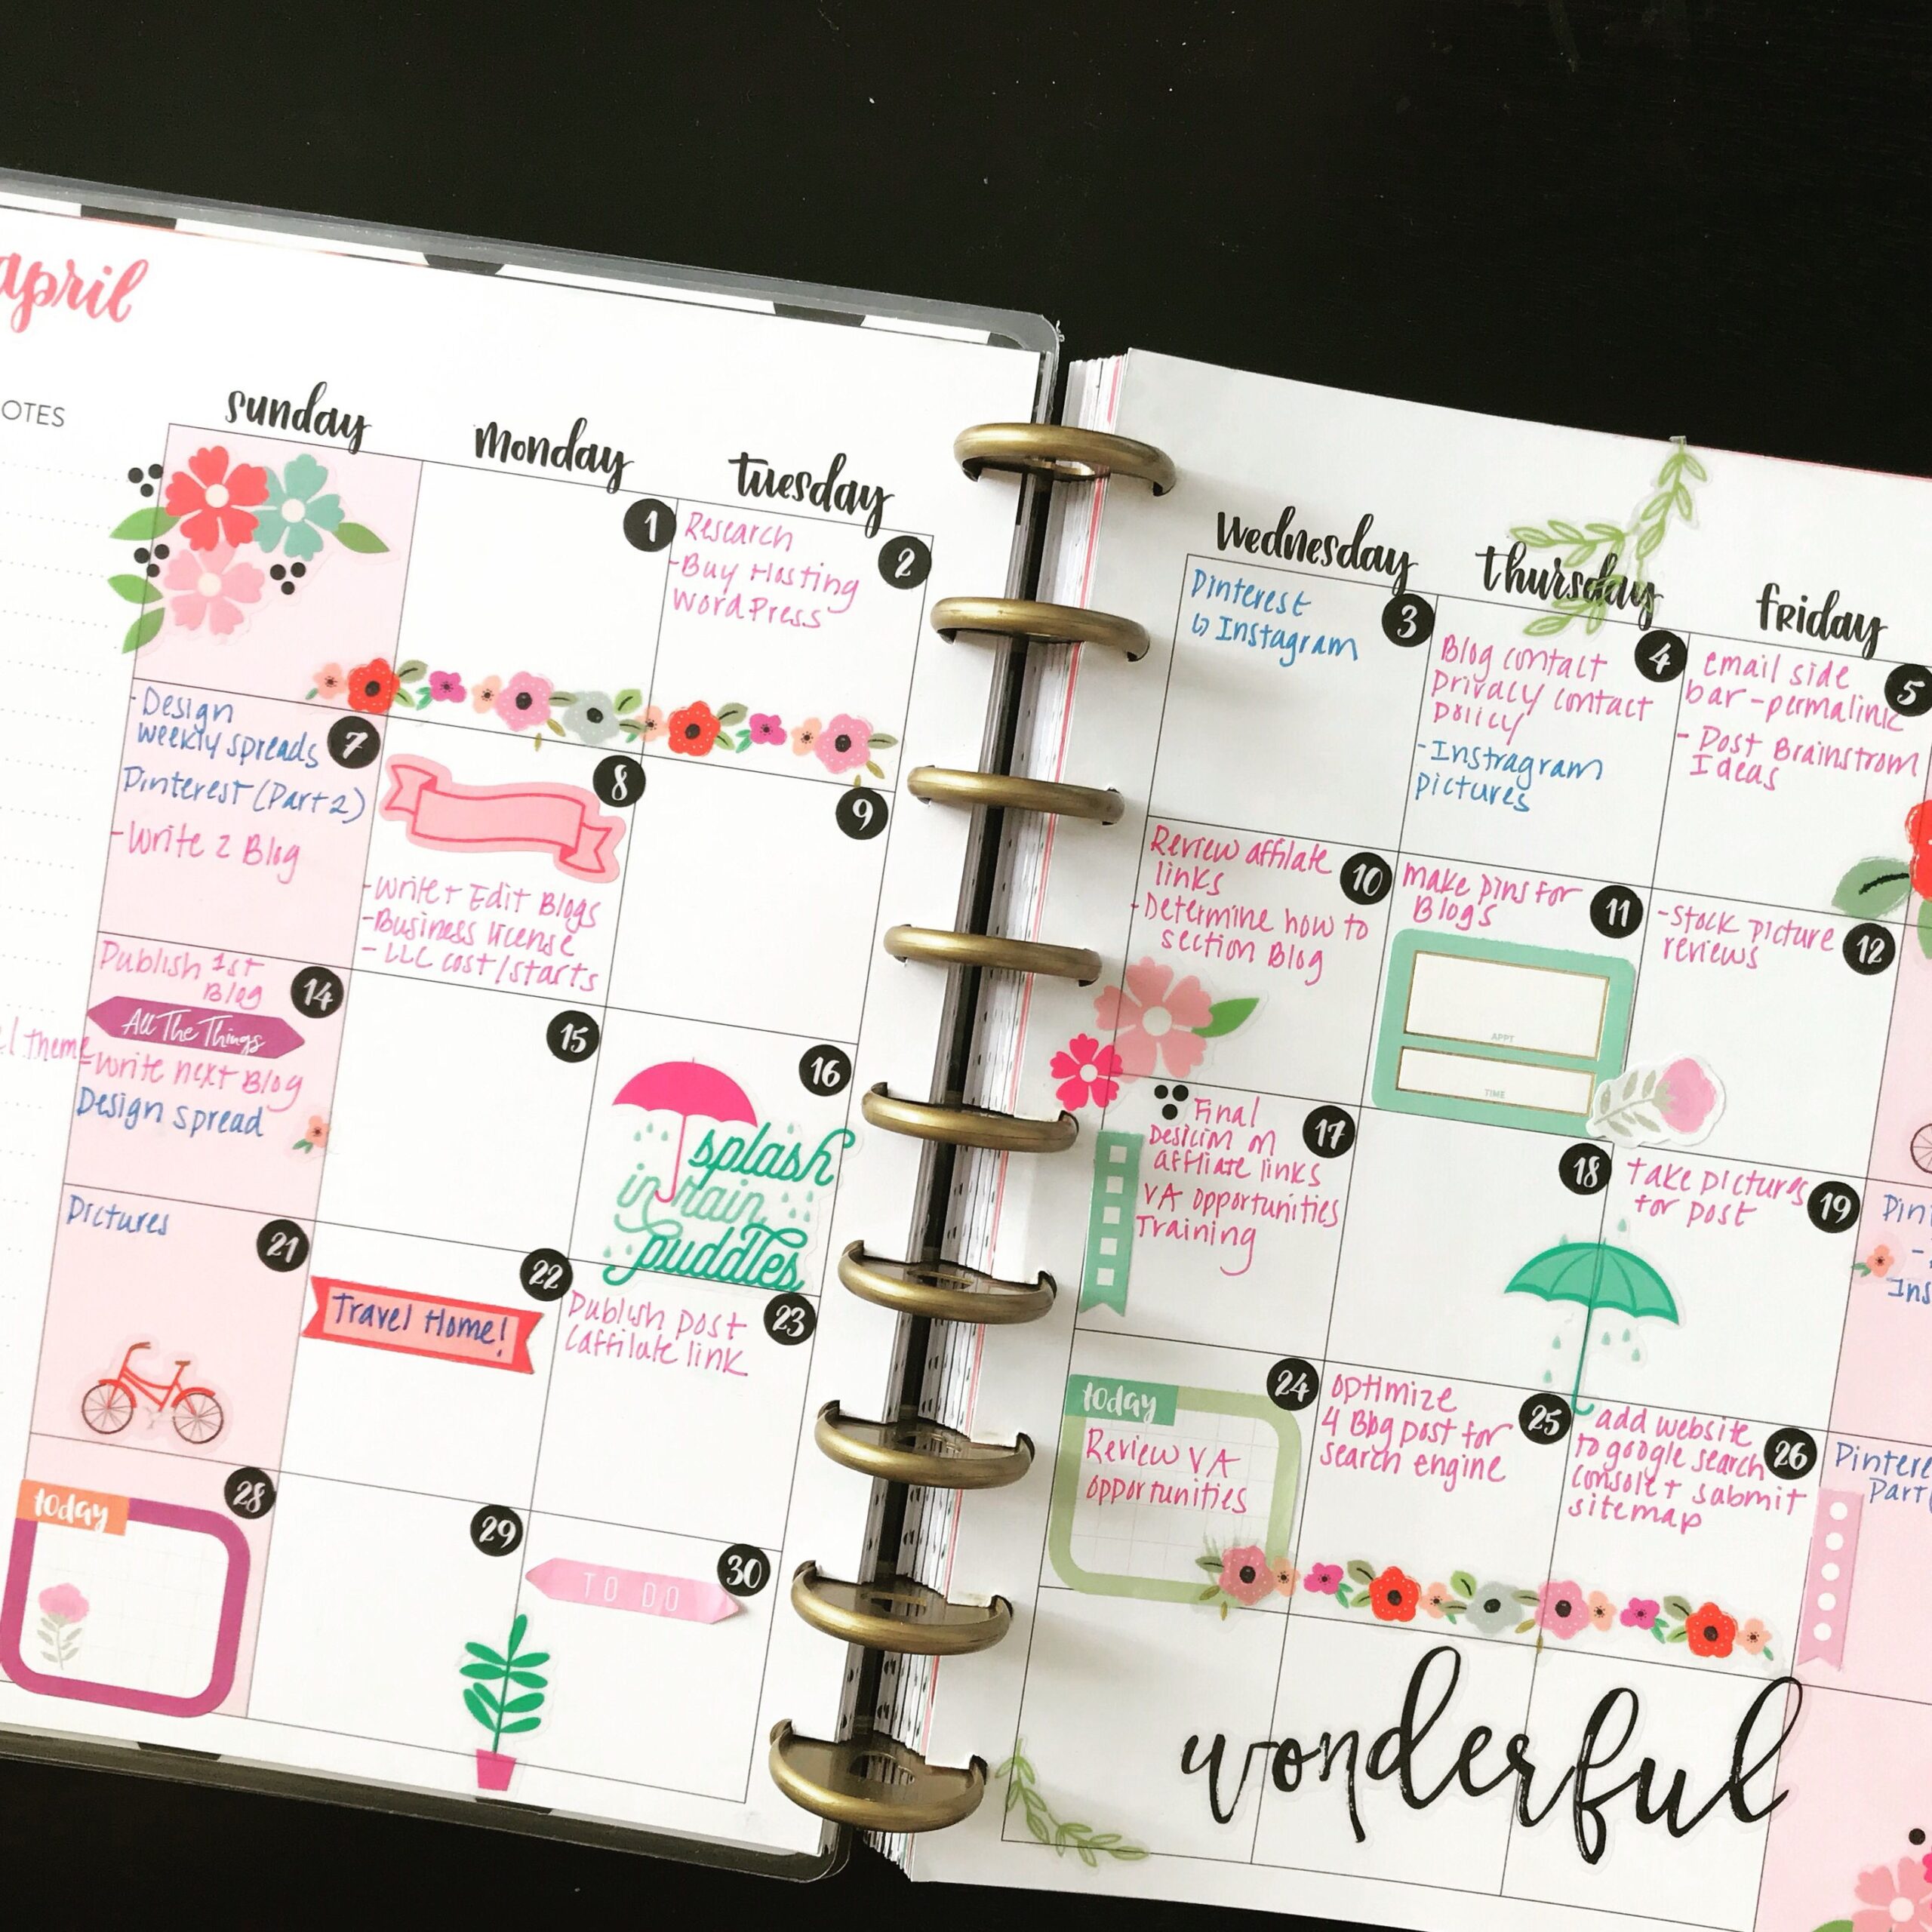 april
OTES
sunday
monday
tuesday
1
Research
-Buy Hosting
WordPress
2
- Design
weekly spreads
Pinterest (Part 2)
-Write 2 Blog
7
8
-Write + Edit Blogs
-Business license
- LLC cost/starts
9
Publish 1st
Blog
14
All The Things
-Write next Blog
Design spread
l theme
15
16
splash
in rain
puddles
Pictures
21
22
Travel Home!
Publish post
(affilate link
23
28
today
29
30
TO DO
wednesday
thursday
friday
Pinterest
↳ Instagram
3
Blog contact
Privacy contact
policy
-Instragram
pictures
4
email side
bar -permalink
- Post Brainstrom
Ideas
5
Review affilate
links
-Determine how to
section Blog
10
make pins for
Blogs
11
APPT
TIME
-Stock picture
reviews
12
Final
on
affliate links
VA opportunities
Training
17
18
Take pictures
for post
19
Pin
-
Ins
24
today
Review VA
opportunities
optimize
4 Blog post for
search engine
25
add website
to google search
console + submit
sitemap
26
Pintere
Part
wonderful